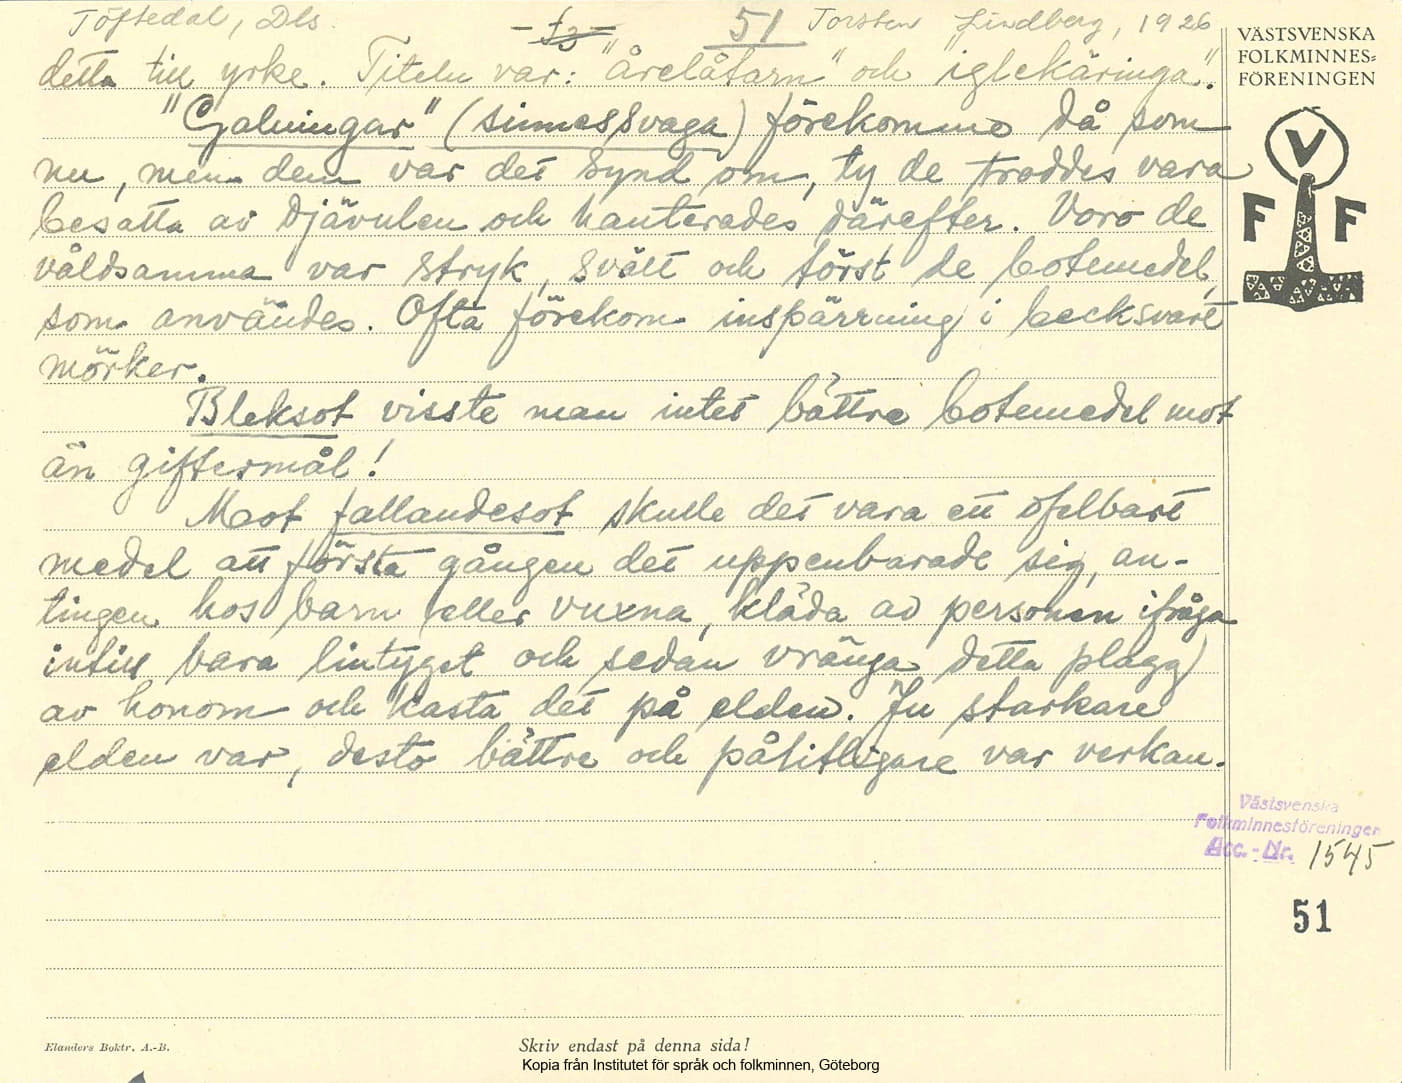 Töftedal, Dls.
51
Torsten Lindberg, 1926
VÄSTSVENSKA
FOLKMINNES=
FÖRENINGEN
detta till yrke. Titeln var: "årelåtarn" och "iglekäringa".
"Galningar" (sinnessvaga) förekommo då som
nu, men dem var det synd om, ty de troddes vara
besatta av Djävulen och hanterades därefter. Voro de
våldsamma var stryk, svält och törst de botemedel,
som användes. Ofta förekom inspärrning i becksvart
mörker.
Bleksot visste man intet bättre botemedel mot
än giftermål!
Mot fallandesot skulle det vara ett ofelbart
medel att första gången det uppenbarade sig, an-
tingen hos barn eller vuxna, kläda av personen ifråga
intill bara lintyget och sedan vränga detta plagg
av honom och kasta det på elden. Ju starkare
elden var, desto bättre och pålitligare var verkan.
V
F F
Västsvenska
Folkminnesföreningen
Acc.-Nr. 1545
51
Elanders Boktr. A.-B.
Skriv endast på denna sida!
Kopia från Institutet för språk och folkminnen, Göteborg